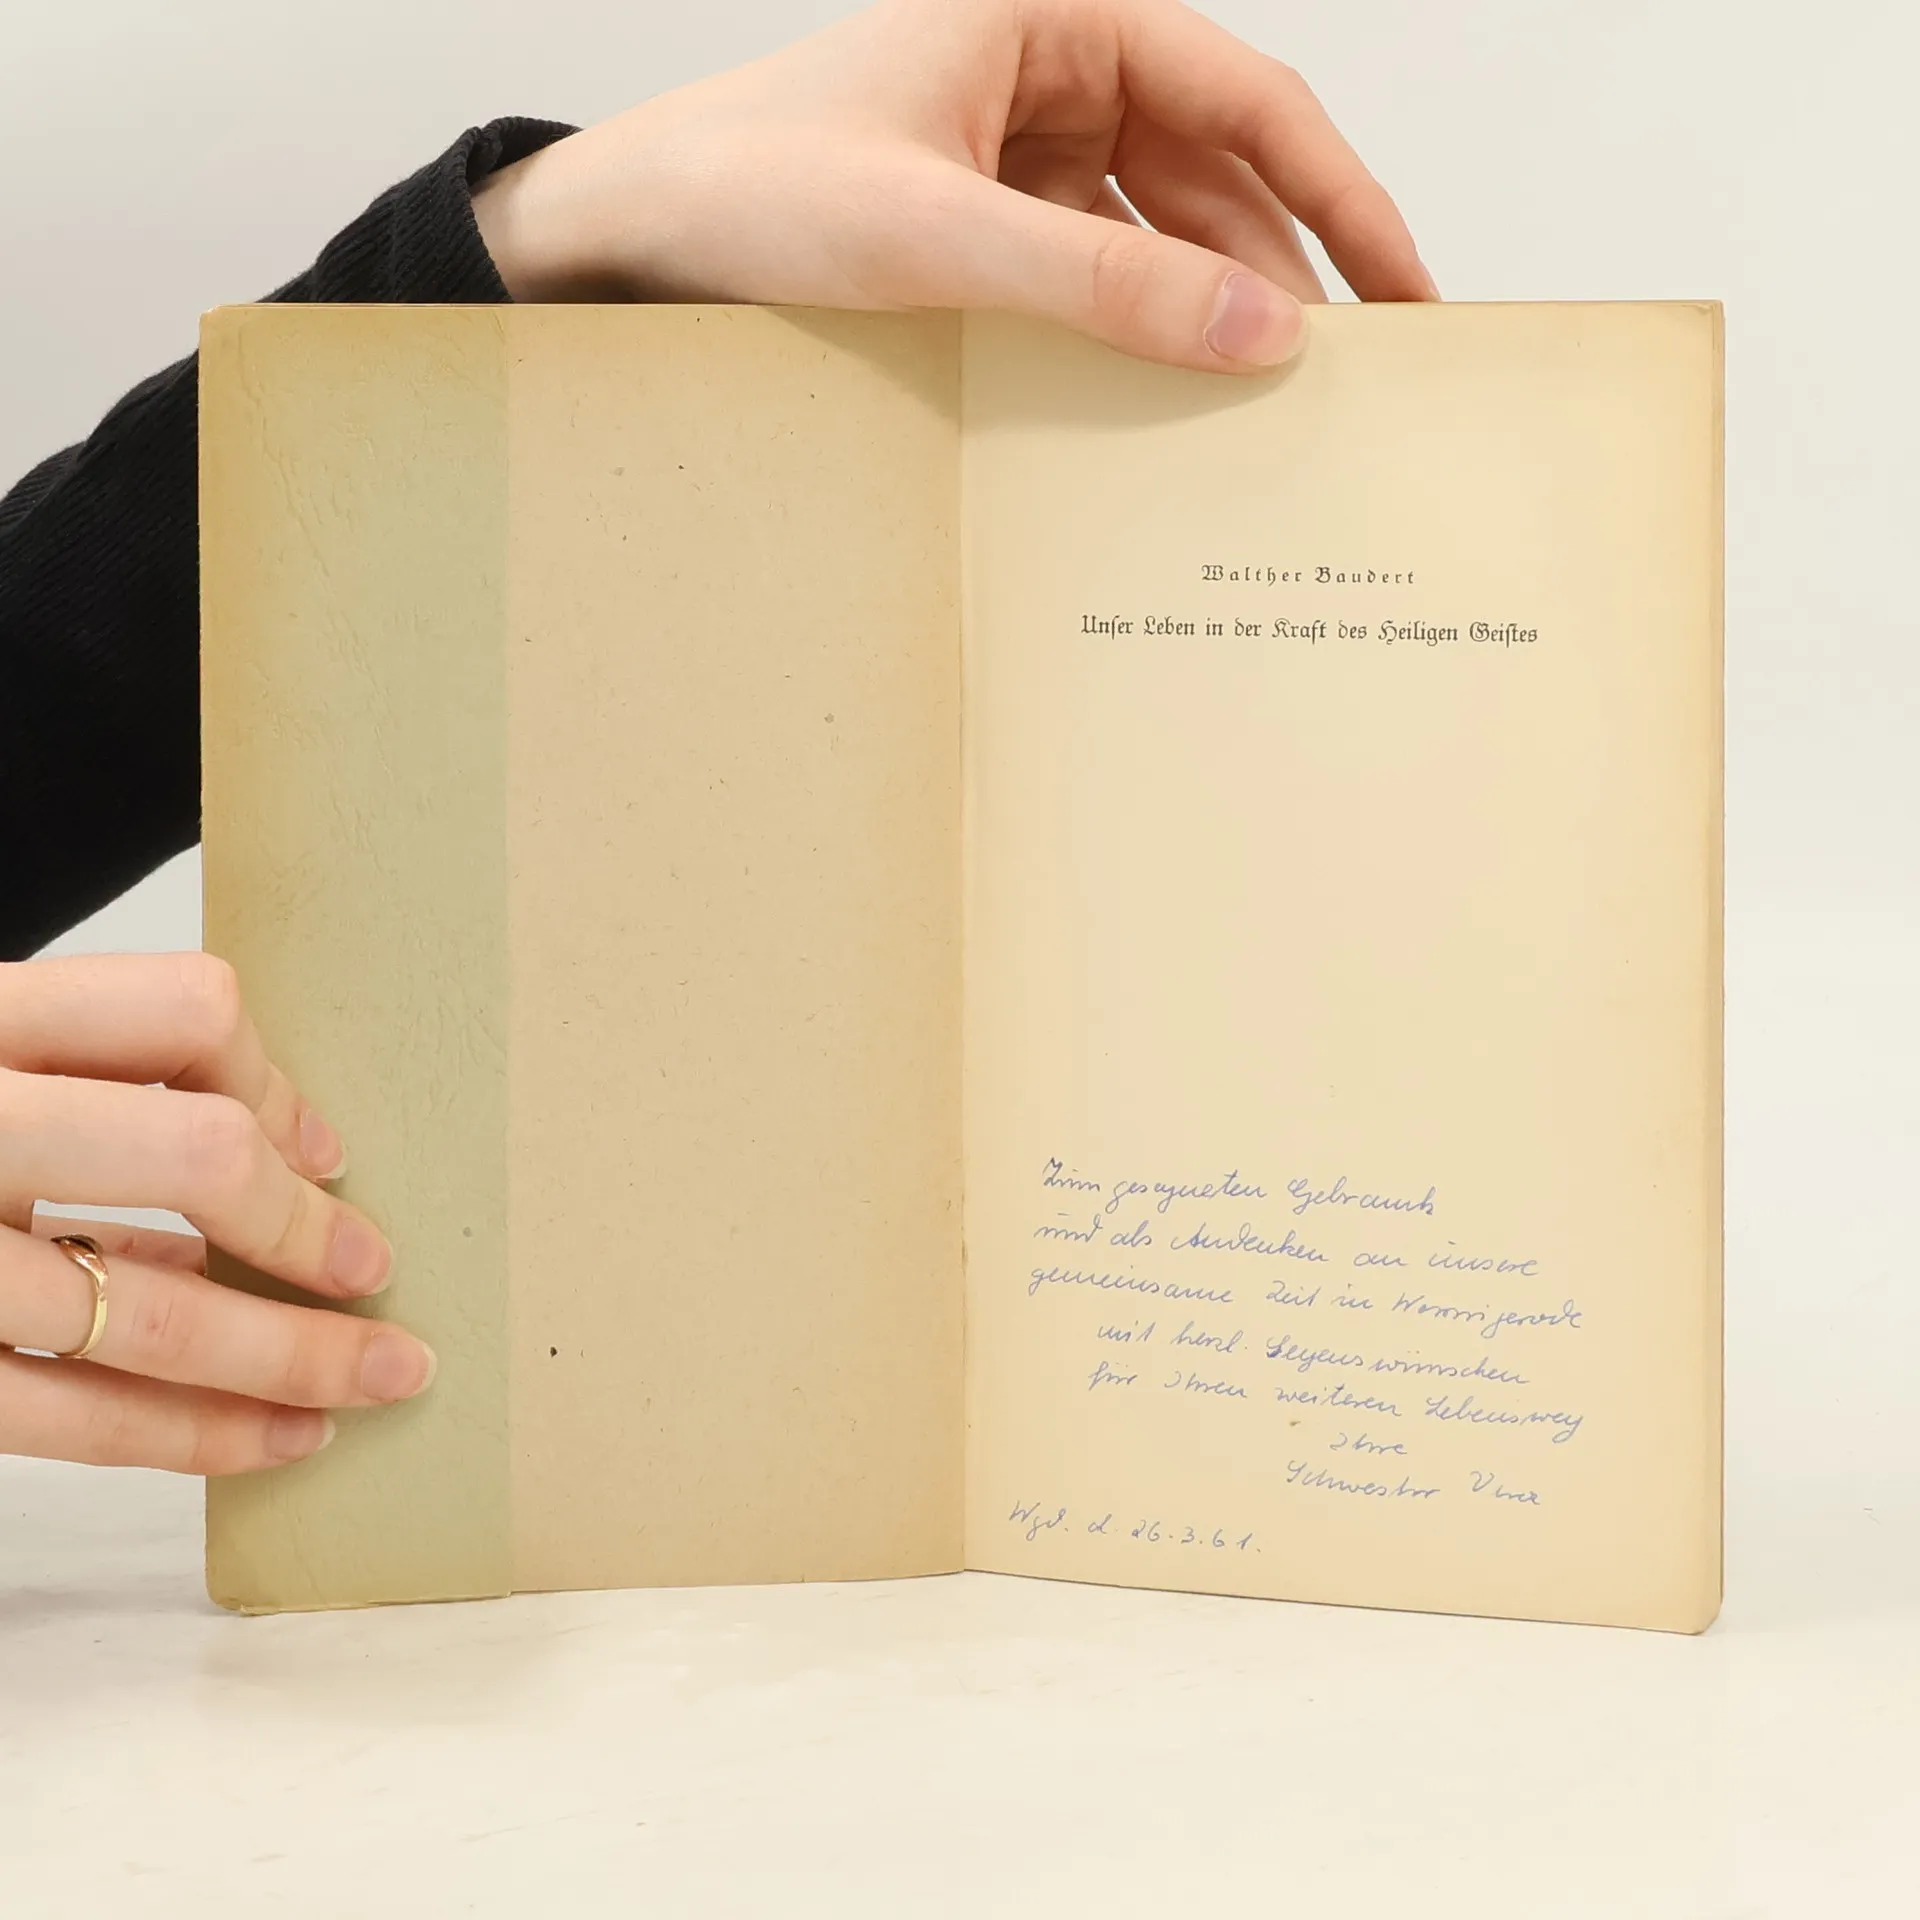 Walther Baudert
Unser Leben in der Kraft des Heiligen Geistes
Zum gesegneten Gebrauch
und als Andenken an unsere
gemeinsame Zeit in Wernigerode
mit herzl. Segenswünschen
für Ihren weiteren Lebensweg
Ihre
Schwester Vera
Wgd. d. 26.3.61.